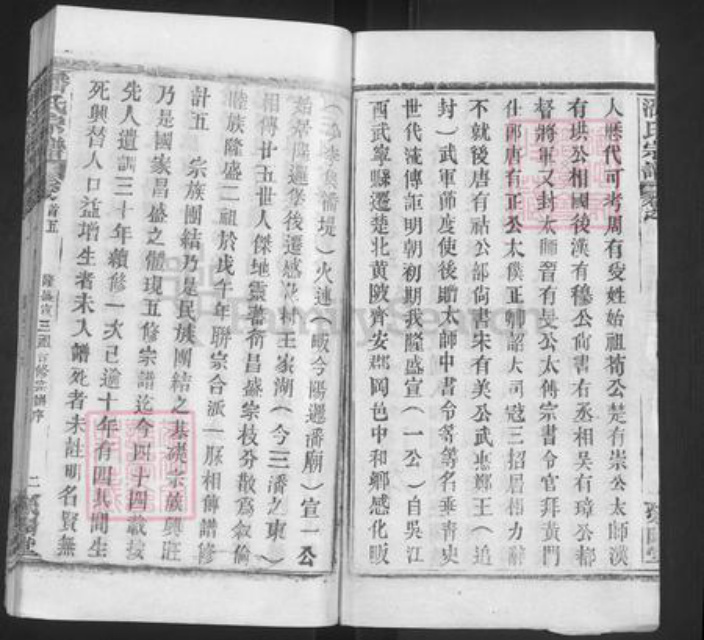 潘氏宗譜
人歷代可考周有燮姓始祖荀公楚有崇公太師漢
有拱公相國後漢有穆公尚書右丞相吳有璋公都
督將軍又封太師晉有旻公太傅宗書令官拜黃門
仕郎唐有正公太僕正卿詔大司寇三招居相力辭
不就後唐有祜公部尙書宋有美公武惠鄭王（追
封）武軍節度使後贈太師中書令等等名垂靑史
世代流傳詎明朝初期我隆盛宣（一公）自吳江
西武寧縣遷楚北黃陂齊安郡岡邑中和鄉感化畈
火連畈今陽邏潘廟）宣一公
始居陽邏堡後遷感化村王家湖（今三潘之東）
相傳廿五世人傑地靈蕃衍昌盛宗枝分散爲敘倫
睦族隆盛二祖於戊午年聯宗合派一脈相傳譜修
計五 宗族團結乃是民族團結之基礎宗族興旺
乃是國家昌盛之體現五修宗譜迄今四十四載按
先人遺訓三十年續修一次已逾十年有四其間生
死興替人口益增生者未入譜死者未註明名賢無
潘氏宗譜 卷之首五 隆盛宣三祖合修宗譜序 二
FamilySearch